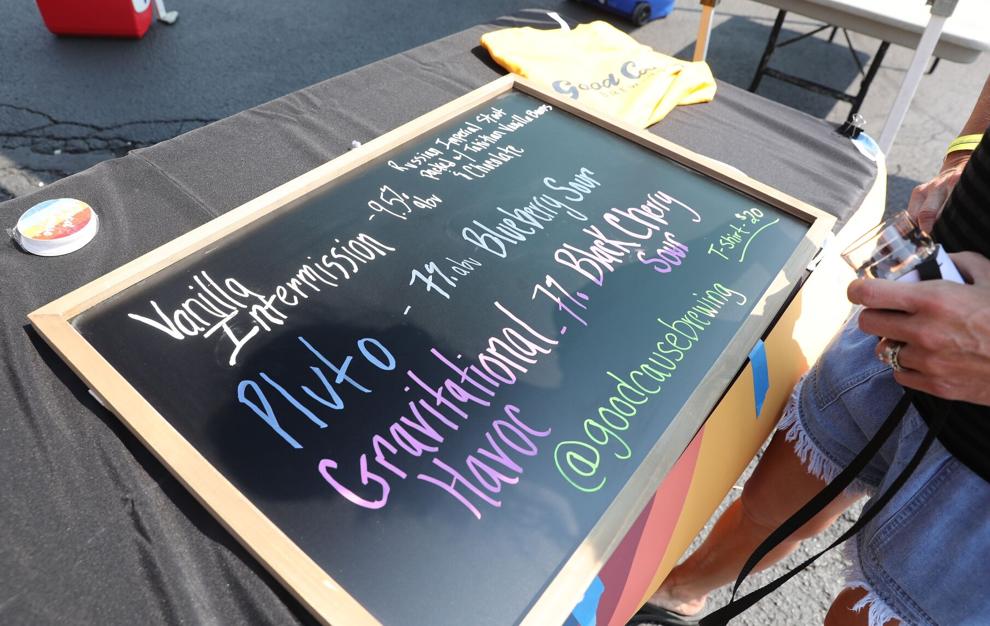 Good Ca
Vanilla
Intermission
-9.5%
abv
Russian Imperial Stout
Packed w/ Tahitian Vanilla Beans
& Chocolate
Pluto - 7% abv Blueberry Sour
Gravitational
Havoc
-7% Black Cherry
Sour
T-Shirt-$20
@goodcausebrewing